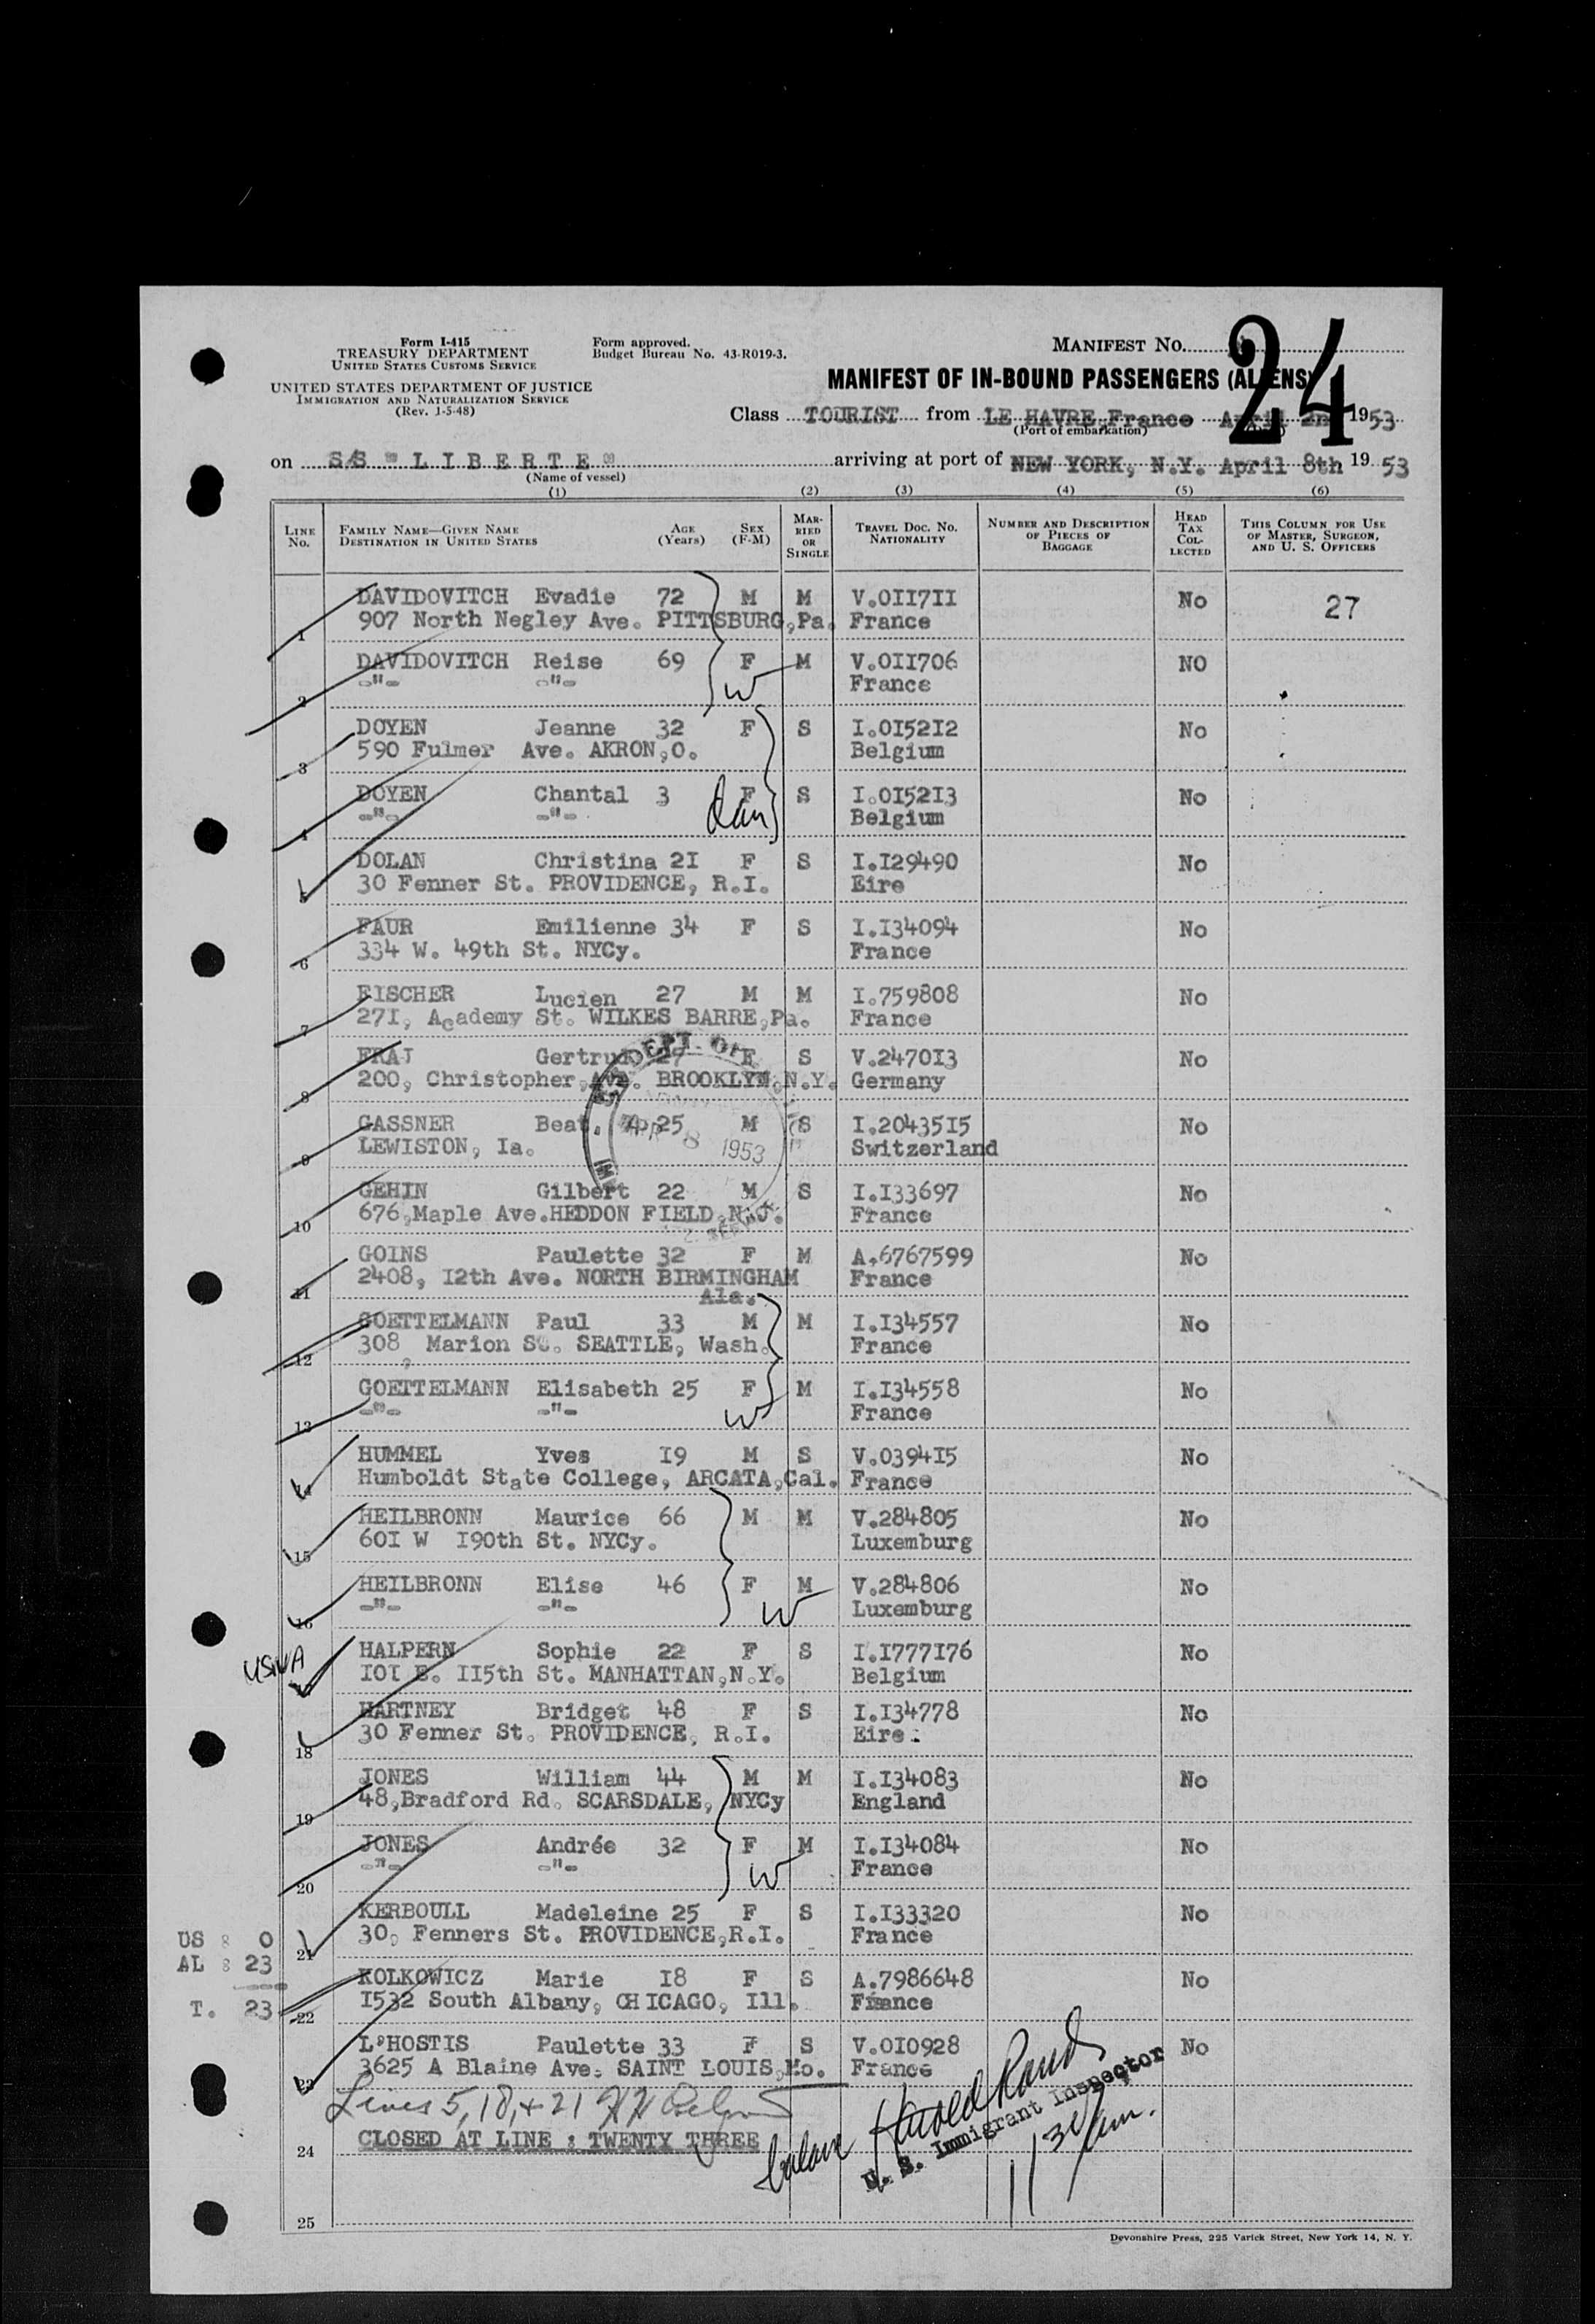 Form I-415
TREASURY DEPARTMENT
UNITED STATES CUSTOMS SERVICE
UNITED STATES DEPARTMENT OF JUSTICE
IMMIGRATION AND NATURALIZATION SERVICE
(Rev. 1-5-48)
Form approved.
Budget Bureau No. 43-R019-3.
MANIFEST No. 24
MANIFEST OF IN-BOUND PASSENGERS (ALIENS)
Class TOURIST from LE HAVRE, France April 2n 1953
(Port of embarkation)
on S/S "LIBERTE" arriving at port of NEW YORK, N.Y. April 8th 1953
(Name of vessel)
(1) (2) (3) (4) (5) (6)
LINE No. FAMILY NAME—GIVEN NAME DESTINATION IN UNITED STATES AGE (Years) SEX (F-M) MARRIED OR SINGLE TRAVEL DOC. NO. NATIONALITY NUMBER AND DESCRIPTION OF PIECES OF BAGGAGE HEAD TAX COLLECTED THIS COLUMN FOR USE OF MASTER, SURGEON, AND U. S. OFFICERS
DAVIDOVITCH Evadie 72 M M V.0II7II No 27
1 907 North Negley Ave. PITTSBURG,Pa. France
DAVIDOVITCH Reise 69 F M V.0II706 NO
2 -"- -"- W France
DOYEN Jeanne 32 F S I.0I52I2 No
3 590 Fulmer Ave. AKRON,O. Belgium
DOYEN Chantal 3 F S I.0I52I3 No
4 -"- -"- dau Belgium
DOLAN Christina 2I F S I.I29490 No
5 30 Fenner St. PROVIDENCE, R.I. Eire
FAUR Emilienne 34 F S I.I34094 No
6 334 W. 49th St. NYCy. France
FISCHER Lucien 27 M M I.759808 No
7 27I, Academy St. WILKES BARRE,Pa. France
FRAJ Gertrud 27 F S V.2470I3 No
8 200, Christopher,Ave. BROOKLYN.N.Y. Germany
GASSNER Beat. 25 M S I.20435I5 No
9 LEWISTON, Ia. Switzerland
APR 8 1953
GEHIN Gilbert 22 M S I.I33697 No
10 676,Maple Ave.HEDDON FIELD,N.J. France
GOINS Paulette 32 F M A.6767599 No
11 2408, I2th Ave. NORTH BIRMINGHAM France
Ala.
GOETTELMANN Paul 33 M M I.I34557 No
12 308, Marion St. SEATTLE, Wash. France
GOETTELMANN Elisabeth 25 F M I.I34558 No
13 -"- -"- W France
HUMMEL Yves I9 M S V.0394I5 No
14 Humboldt State College, ARCATA,Cal. France
HEILBRONN Maurice 66 M M V.284805 No
15 60I W I90th St. NYCy. Luxemburg
HEILBRONN Elise 46 F M V.284806 No
16 -"- -"- W Luxemburg
USNA HALPERN Sophie 22 F S I.I777I76 No
I0I E. II5th St. MANHATTAN,N.Y. Belgium
HARTNEY Bridget 48 F S I.I34778 No
18 30 Fenner St. PROVIDENCE, R.I. Eire.
JONES William 44 M M I.I34083 No
19 48,Bradford Rd. SCARSDALE, NYCy England
JONES Andrée 32 F M I.I34084 No
20 -"- -"- W France
KERBOULL Madeleine 25 F S I.I33320 No
21 30, Fenners St. PROVIDENCE,R.I. France
US : 0
AL : 23
T. 23
KOLKOWICZ Marie I8 F S A.7986648 No
22 I532 South Albany, CHICAGO, Ill. France
L'HOSTIS Paulette 33 F S V.0I0928 No
23 3625 A Blaine Ave. SAINT LOUIS,Mo. France
Lines 5, 18, + 21
24 CLOSED AT LINE : TWENTY THREE
Harold Rand
U. S. Immigrant Inspector
1130 am.
25
Devonshire Press, 225 Varick Street, New York 14, N. Y.